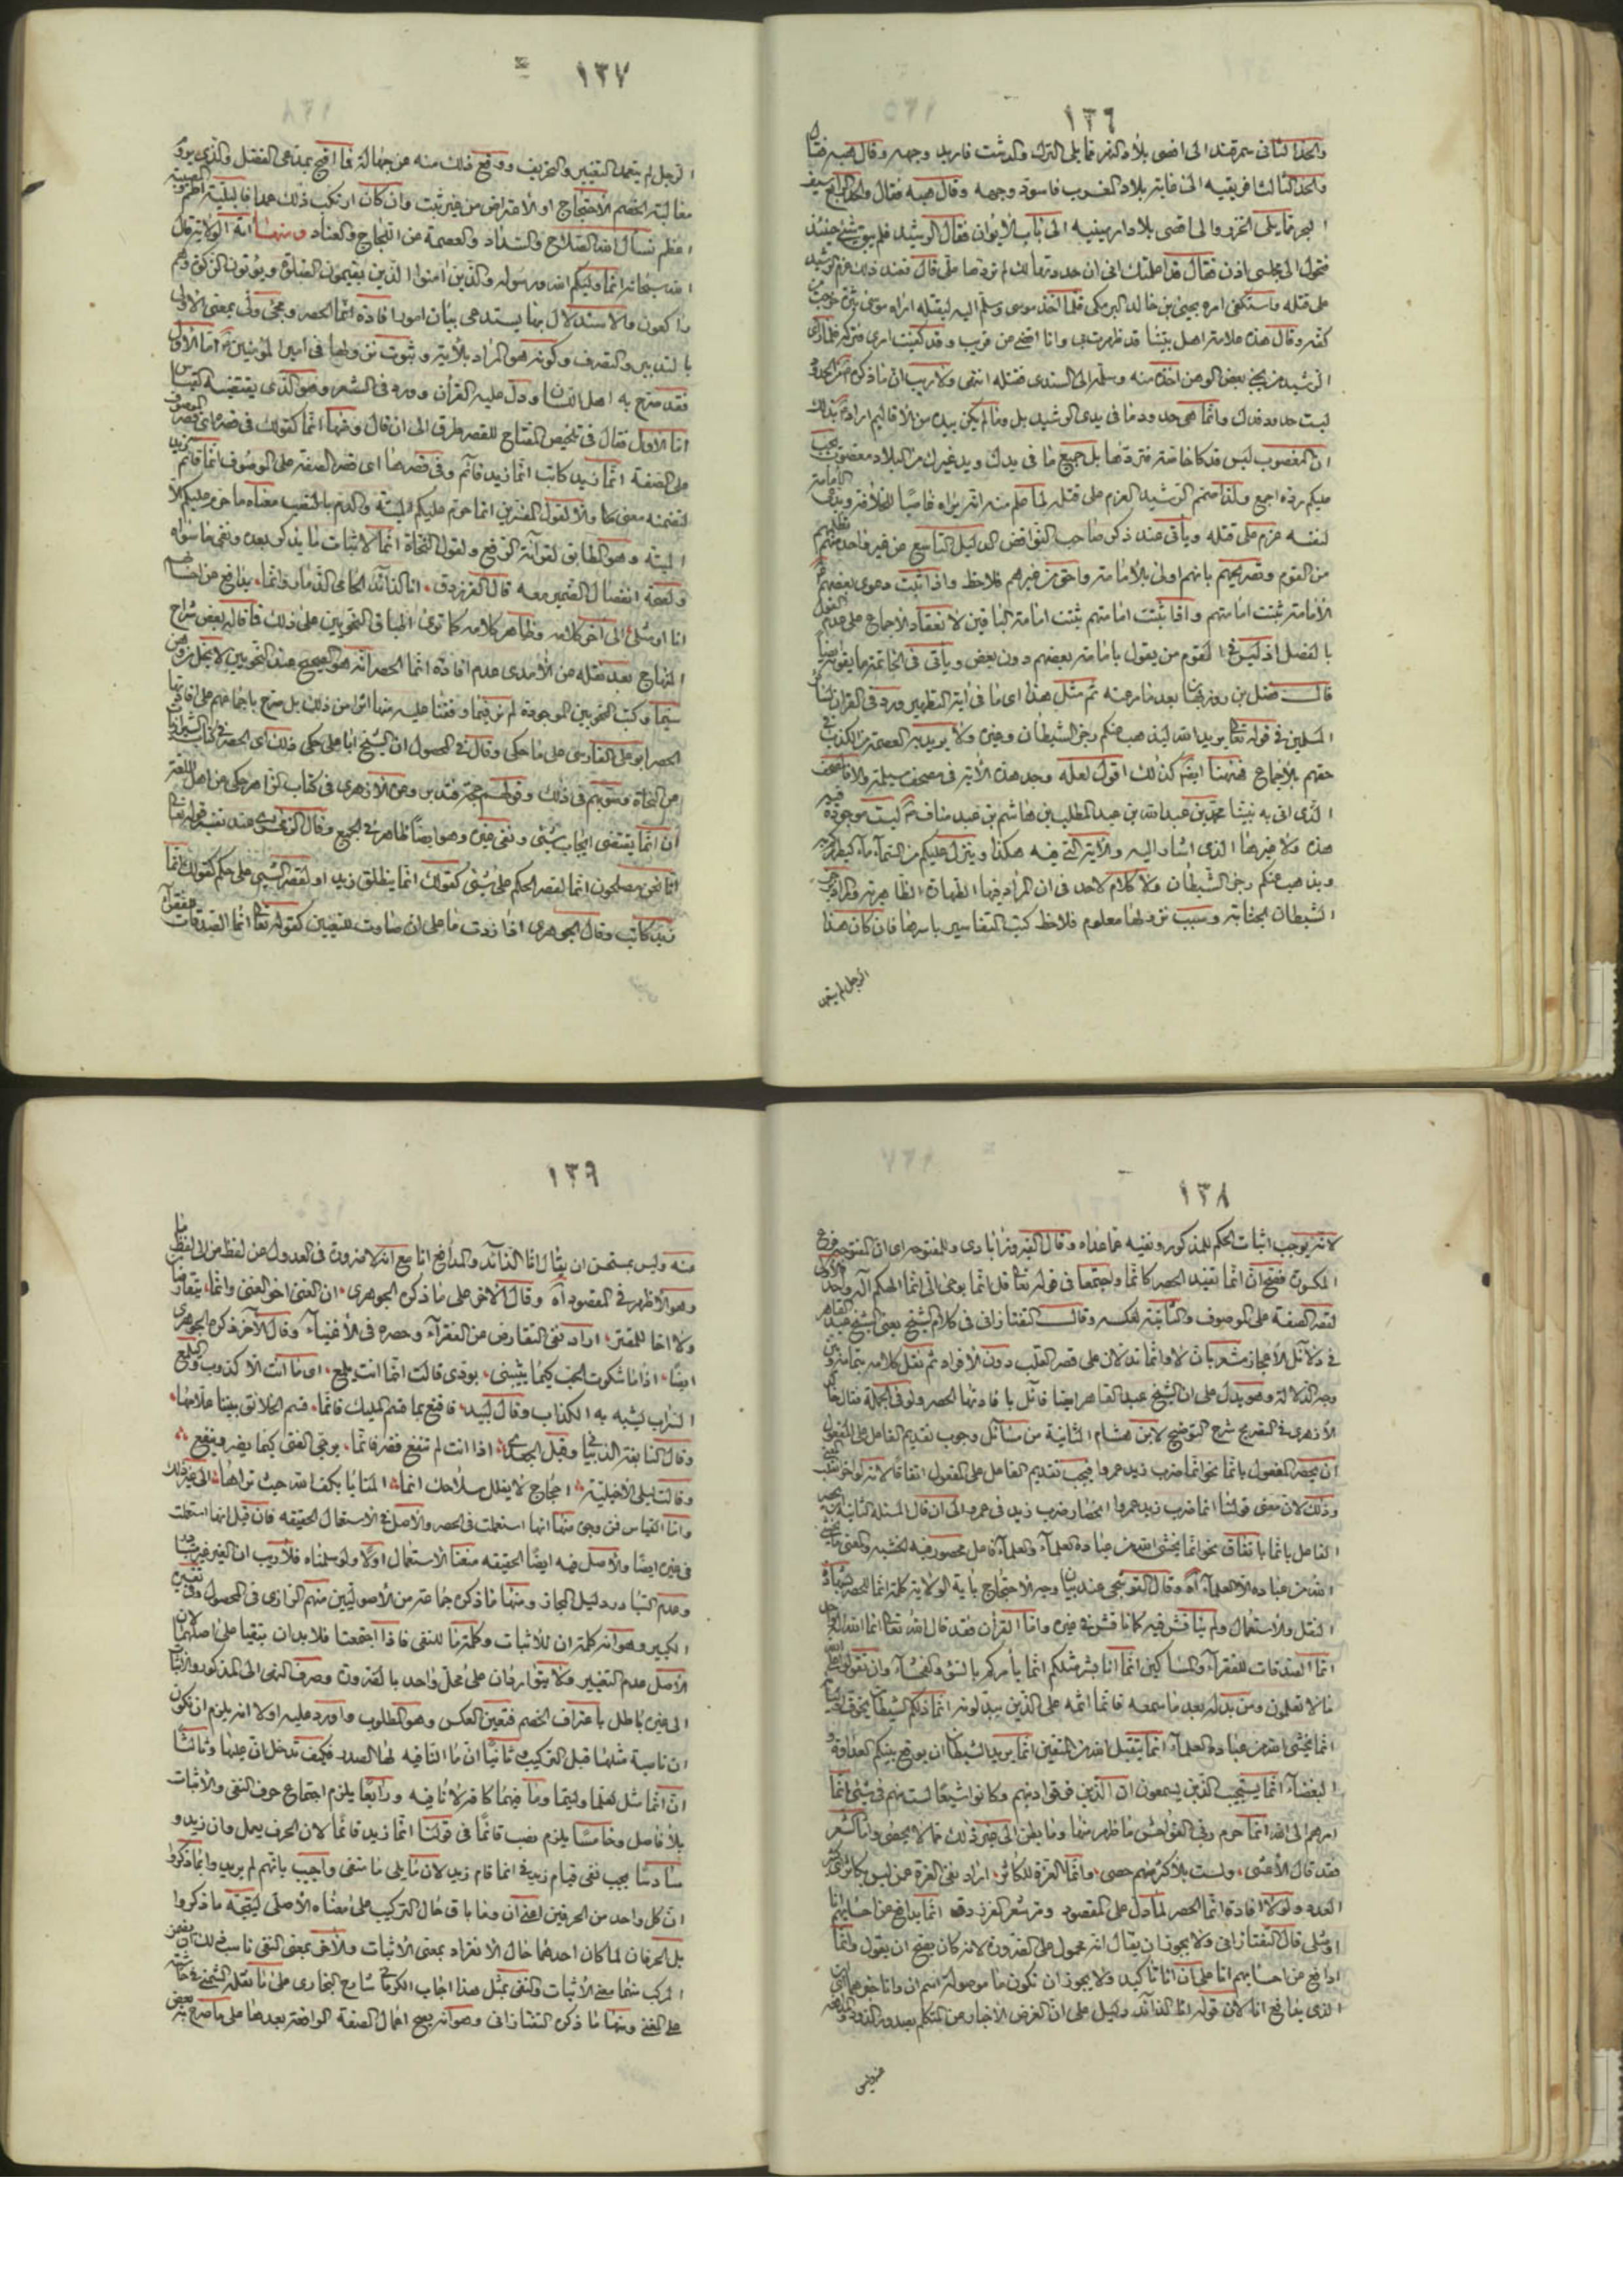 ١٣٦
والحد الثانى سمرقند الى اقصى بلاد التتر مما يلى الترك والدشت فاربد وجهه وقال هيه فقال
والحد الثالث افريقيه الى غاية بلاد الغرب فاسود وجهه وقال هيه فقال والحد الرابع سيف
البحر مما يلى الخزر والى اقصى بلاد ارمينيه الى باب الابواب فقال الرشيد فلم يبق شئ حينئذ
فتحول الى مجلسى اذن فقال قد اعلمتك انى ان حددتها لك لم تردها على قال فعند ذلك عزم الرشيد
على قتله واستكفى امره يحيى بن خالد البرمكى فلما اخذ موسى وسلم اليه ليقتله اراه موسى
كفه وقال هذه علامة اهل بيتنا قد ظهرت بى وانا اقضى من قريب وقد كفيت امرى فتركه فلما راى
الرشيد من يحيى بعض الوهن اخذه منه وسلمه الى السندى فقتله انتهى ولا ريب ان ما ذكره من الحدود
ليست حدود فدك وانما هى حدود ما فى يدى الرشيد بل وما لم يكن بيده من الاقاليم اراد بذلك
ان المغصوب ليس فدكا خاصة فتردها بل جميع ما فى يدك ويد غيرك من البلاد مغصوب يجب
عليكم رده اجمع ولذا صمم الرشيد العزم على قتله لما علم منه انه يراه غاصبا للخلافة ويدعى الامامة
لنفسه عزم على قتله وياتى عند ذكر صاحب النواقض الدليل التاسع عن غير واحد منهم
من القوم وتصريحهم بانهم اولى بالامامة واحق من غيرهم فلاحظ واذا ثبت دعوى بعضهم
الامامة ثبتت امامتهم واذا ثبتت امامتهم ثبتت امامة الباقين لانعقاد الاجماع على عدم القول
بالفصل اذ ليس فى القوم من يقول بامامة بعضهم دون بعض وياتى فى الخاتمة ما يقويه ايضا
قال فضل بن روزبهان بعد ما مر عنه ثم مثل هذا اى ما فى آية التطهير ورد فى القران
المسلمين فى قوله تعالى يريد الله ليذهب عنكم رجز الشيطان وغيره ولا يريد به العصمة من الكذب فى
حقهم بالاجماع فههنا ايضا كذلك اقول لعله وجد هذه الآية فى مصحف مسيلمة والا فالمصحف
الذى اتى به نبينا محمد بن عبد الله بن عبد المطلب بن هاشم بن عبد مناف ليست موجودة فيه
هذه ولا غيرها الذى اشار اليه والآية التى فيه هكذا وينزل عليكم من السماء ماء ليطهركم به
ويذهب عنكم رجز الشيطان ولا كلام لاحد فى ان المراد فيها الطهارة الظاهرية والمراد برجز
الشيطان الجنابة وسبب نزولها معلوم فلاحظ كتب التفاسير باسرها فان كان هذا
الرجل لم يتعمد
١٣٧
الرجل لم يتعمد التغيير والتحريف ووقع ذلك منه عن جهالة فما اقبح بمدعى الفضل والذى يروم
مغالبة الخصم الاحتجاج او الاعتراض من غير تثبت وان كان ارتكب ذلك عمدا فالبلية اطم والمصيبة
اعظم نسأل الله الصلاح والسداد والعصمة من اللجاج والعناد ومنها آية الولاية قال
الله سبحانه انما وليكم الله ورسوله والذين امنوا الذين يقيمون الصلوة ويؤتون الزكوة وهم
راكعون والاستدلال بها يستدعى بيان امور افادة انما الحصر ومجئ ولى بمعنى الاولى
بالتدبير والتصرف وكونه هو المراد بالآية وثبوت نزولها فى امير المؤمنين اما الاول
فقد صرح به اهل اللسان ودل عليه القرآن وورد فى الشعر وهو الذى يقتضيه القياس
اما الاول فقال فى تلخيص المفتاح للقصر طرق الى ان قال ومنها انما كقولك فى قصره اى قصر الموصوف
على الصفة انما زيد كاتب انما زيد قائم وفى قصرها اى قصر الصفة على الموصوف انما قائم زيد
لتضمنه معنى ما والا لقول المفسرين انما حرم عليكم الميتة والدم بالنصب معناه ما حرم عليكم الا
الميتة وهو المطابق لقرآءة الرفع ولقول النحاة انما لاثبات ما يذكر بعده ونفى ما سواه
ولصحة انفصال الضمير معه قال الفرزدق انا الذآئد الحامى الذمار وانما يدافع عن احسابهم
انا او مثلى الى اخر كلامه وظاهر كلامه كما ترى اطباق النحويين على ذلك فما قاله بعض شراح
المنهاج بعد نقله عن الآمدى عدم افادة انما الحصر انه هو الصحيح عند النحويين لا يخلو من وهن
سيما وكتب النحويين الموجودة لم نر فيما وقفنا عليه منها اثرا من ذلك بل صرح باجماعهم على افادتها
الحصر ابو على الفارسى على ما حكى وقال فى المحصول ان الشيخ ابا على حكى ذلك اى الحصر فى كتاب الشيرازيات
عن النحاة وصوبهم فى ذلك وقولهم حجة فتدبر وعن الازهرى فى كتاب الزاهر حكى عن اهل اللغة
ان انما يقتضى ايجاب شئ ونفى غيره وهو ايضا ظاهر فى الجمع وقال الزمخشرى عند تفسير قوله تعالى
انما نحن مصلحون انما لقصر الحكم على شئ كقولك انما ينطلق زيد او لقصر الشئ على حكم كقولك انما
زيد كاتب وقال الجوهرى اذا زدت ما على ان صارت للتعيين كقوله تعالى انما الصدقات للفقرآء
١٣٨
لانه يوجب اثبات الحكم للمذكور ونفيه عما عداه وقال الفيروزآبادى والمفتوحة اى ان المفتوحة فرع
المكسورة فصح ان انما تفيد الحصر كانما واجتمعا فى قوله تعالى قل انما يوحى الى انما الهكم آله واحد فالاولى
لقصر الصفة على الموصوف والثانية لعكسه وقال التفتازانى فى كلام الشيخ يعنى الشيخ عبد القاهر
فى دلآئل الاعجاز مشعر بان لا وانما تدلان على قصر القلب دون الافراد ثم نقل كلامه بتمامه وبين
وجه الدلالة وهو يدل على ان الشيخ عبد القاهر ايضا قائل بافادتها الحصر ولو فى الجملة فقال خالد
الازهرى فى التصريح شرح التوضيح لابن هشام الثانية من مسآئل وجوب تقديم الفاعل على المفعول
ان يحصر المفعول بانما نحو انما ضرب زيد عمروا فيجب تقديم الفاعل على المفعول اتفاقا لانه لو اخر انقلب المعنى
وذلك لان معنى قولنا انما ضرب زيد عمروا انحصار ضرب زيد فى عمرو الى ان قال المسئلة الثانية
الفاعل بانما باتفاق نحو انما يخشى الله من عباده العلمآء والعلمآء فاعل محصور فيه الخشية والمعنى ما يخشى
الله من عباده الا العلمآء آه وقال القوشجى عند بيان وجه الاحتجاج بآية الولاية كلمة انما للحصر بشهادة
النقل والاستعمال ولم يناقش فيه كما ناقش فى غيره واما القرآن فقد قال الله تعالى انما الله اله واحد
انما الصدقات للفقرآء والمساكين انما انا بشر مثلكم انما يأمركم بالسوء والفحشآء وان تقولوا على الله
ما لا تعلمون ومن بدله بعد ما سمعه فانما اثمه على الذين يبدلونه انما ذلكم الشيطان يخوف اوليآءه
انما يخشى الله من عباده العلمآء انما يتقبل الله من المتقين انما يريد الشيطان ان يوقع بينكم العداوة و
البغضآء انما يستجيب الذين يسمعون ان الذين فرقوا دينهم وكانوا شيعا لست منهم فى شئ انما
امرهم الى الله انما حرم ربى الفواحش ما ظهر منها وما بطن الى غير ذلك مما لا يحصى واما الشعر
فقد قال الاعشى ولست بالاكثر منهم حصى وانما العزة للكاثر اراد نفى العزة عمن ليس بكاثر كثير
العدد ولولا افادة انما الحصر لما دل على المقصود ومر شعر الفرزدق انما يدافع عن احسابهم انا
او مثلى قال التفتازانى ولا يجوز ان يقال انه محمول على الضرورة لانه كان يصح ان يقول وانما
ادافع عن احسابهم انا على ان انا تاكيد ولا يجوز ان تكون ما موصولة اسم ان وانا خبرها اى ان
الذى يدافع انا لان قوله انا الذآئد دليل على ان الغرض الاخبار عن المتكلم بصدور الذود والمدافعة
منه وليس
١٣٩
منه وليس بمستحسن ان يقال انا الذآئد والمدافع انا مع انه لا ضرورة فى العدول عن لفظ من الى لفظ ما
وهو الاظهر فى المقصود آه وقال الآخر على ما ذكره الجوهرى ان الغنى اخو الغنى وانما يتقارضان
ولا اخا للمقتر اراد نفى التقارض عن الفقرآء وحصره فى الاغنيآء وقال الآخر ذكره الجوهرى
ايضا اذا ما شكوت الحب كيما تثيبنى بودى قالت انما انت يلمع اى ما انت الا كذوب واليلمع
السراب يشبه به الكذاب وقال لبيد فاقنع بما قسم المليك فانما قسم الخلائق بيننا علامها
وقال النابغة الذبيانى وقيل الجعدى اذا انت لم تنفع فضر فانما يرجى الفتى كيما يضر وينفع
وقالت ليلى الاخيلية احجاج لا يفلل سلاحك انما المنايا بكف الله حيث تراها الى غير ذلك
واما القياس فمن وجوه منها انها استعملت فى الحصر والاصل فى الاستعمال الحقيقة فان قيل انها استعملت
فى غيره ايضا والاصل فيه ايضا الحقيقه منعنا الاستعمال اولا ولو سلمناه فلا ريب ان الغير غير متبادر
وعدم التبادر دليل المجاز ومنها ما ذكره جماعة من الاصوليين منهم الرازى فى المحصول وفى تفسيره
الكبير وهو انه كلمة ان للاثبات وكلمة ما للنفى فاذا اجتمعتا فلا بد ان يبقيا على اصلهما لان
الاصل عدم التغيير ولا يتواردان على محل واحد بالضرورة وصرف النفى الى المذكور والاثبات
الى غيره باطل باعتراف الخصم فتعين العكس وهو المطلوب واورد عليه اولا انه يلزم ان تكون
ان ناصبة مثلها قبل التركيب وثانيا ان ما النافيه لها الصدر فكيف تدخل ان عليها وثالثا
ان انما مثل لعلما وليتما وما فيهما كافة لا نافيه ورابعا يلزم اجتماع حرف النفى والاثبات
بلا فاصل وخامسا يلزم نصب قائما فى قولنا انما زيد قائما لان الحرف يعمل وان زيد و
سادسا يجب نفى قيام زيد فى انما قام زيد لان ما يلى ما منفى واجيب بانهم لم يريدوا بما ذكروا
ان كل واحد من الحرفين اعنى ان وما باق حال التركيب على معناه الاصلى ليتجه ما ذكروا
بل الحرفان لما كان احدهما حال الانفراد بمعنى الاثبات والآخر بمعنى النفى ناسب ذلك ان يضمن
المركب منهما معنى الاثبات والنفى بمثل هذا اجاب الكرمانى شارح البخارى على ما نقله الشمنى فى حاشيته
على المغنى ومنها ما ذكره التفتازانى وهو انه يصح اعمال الصفة الواقعة بعدها على ما صرح به بعض